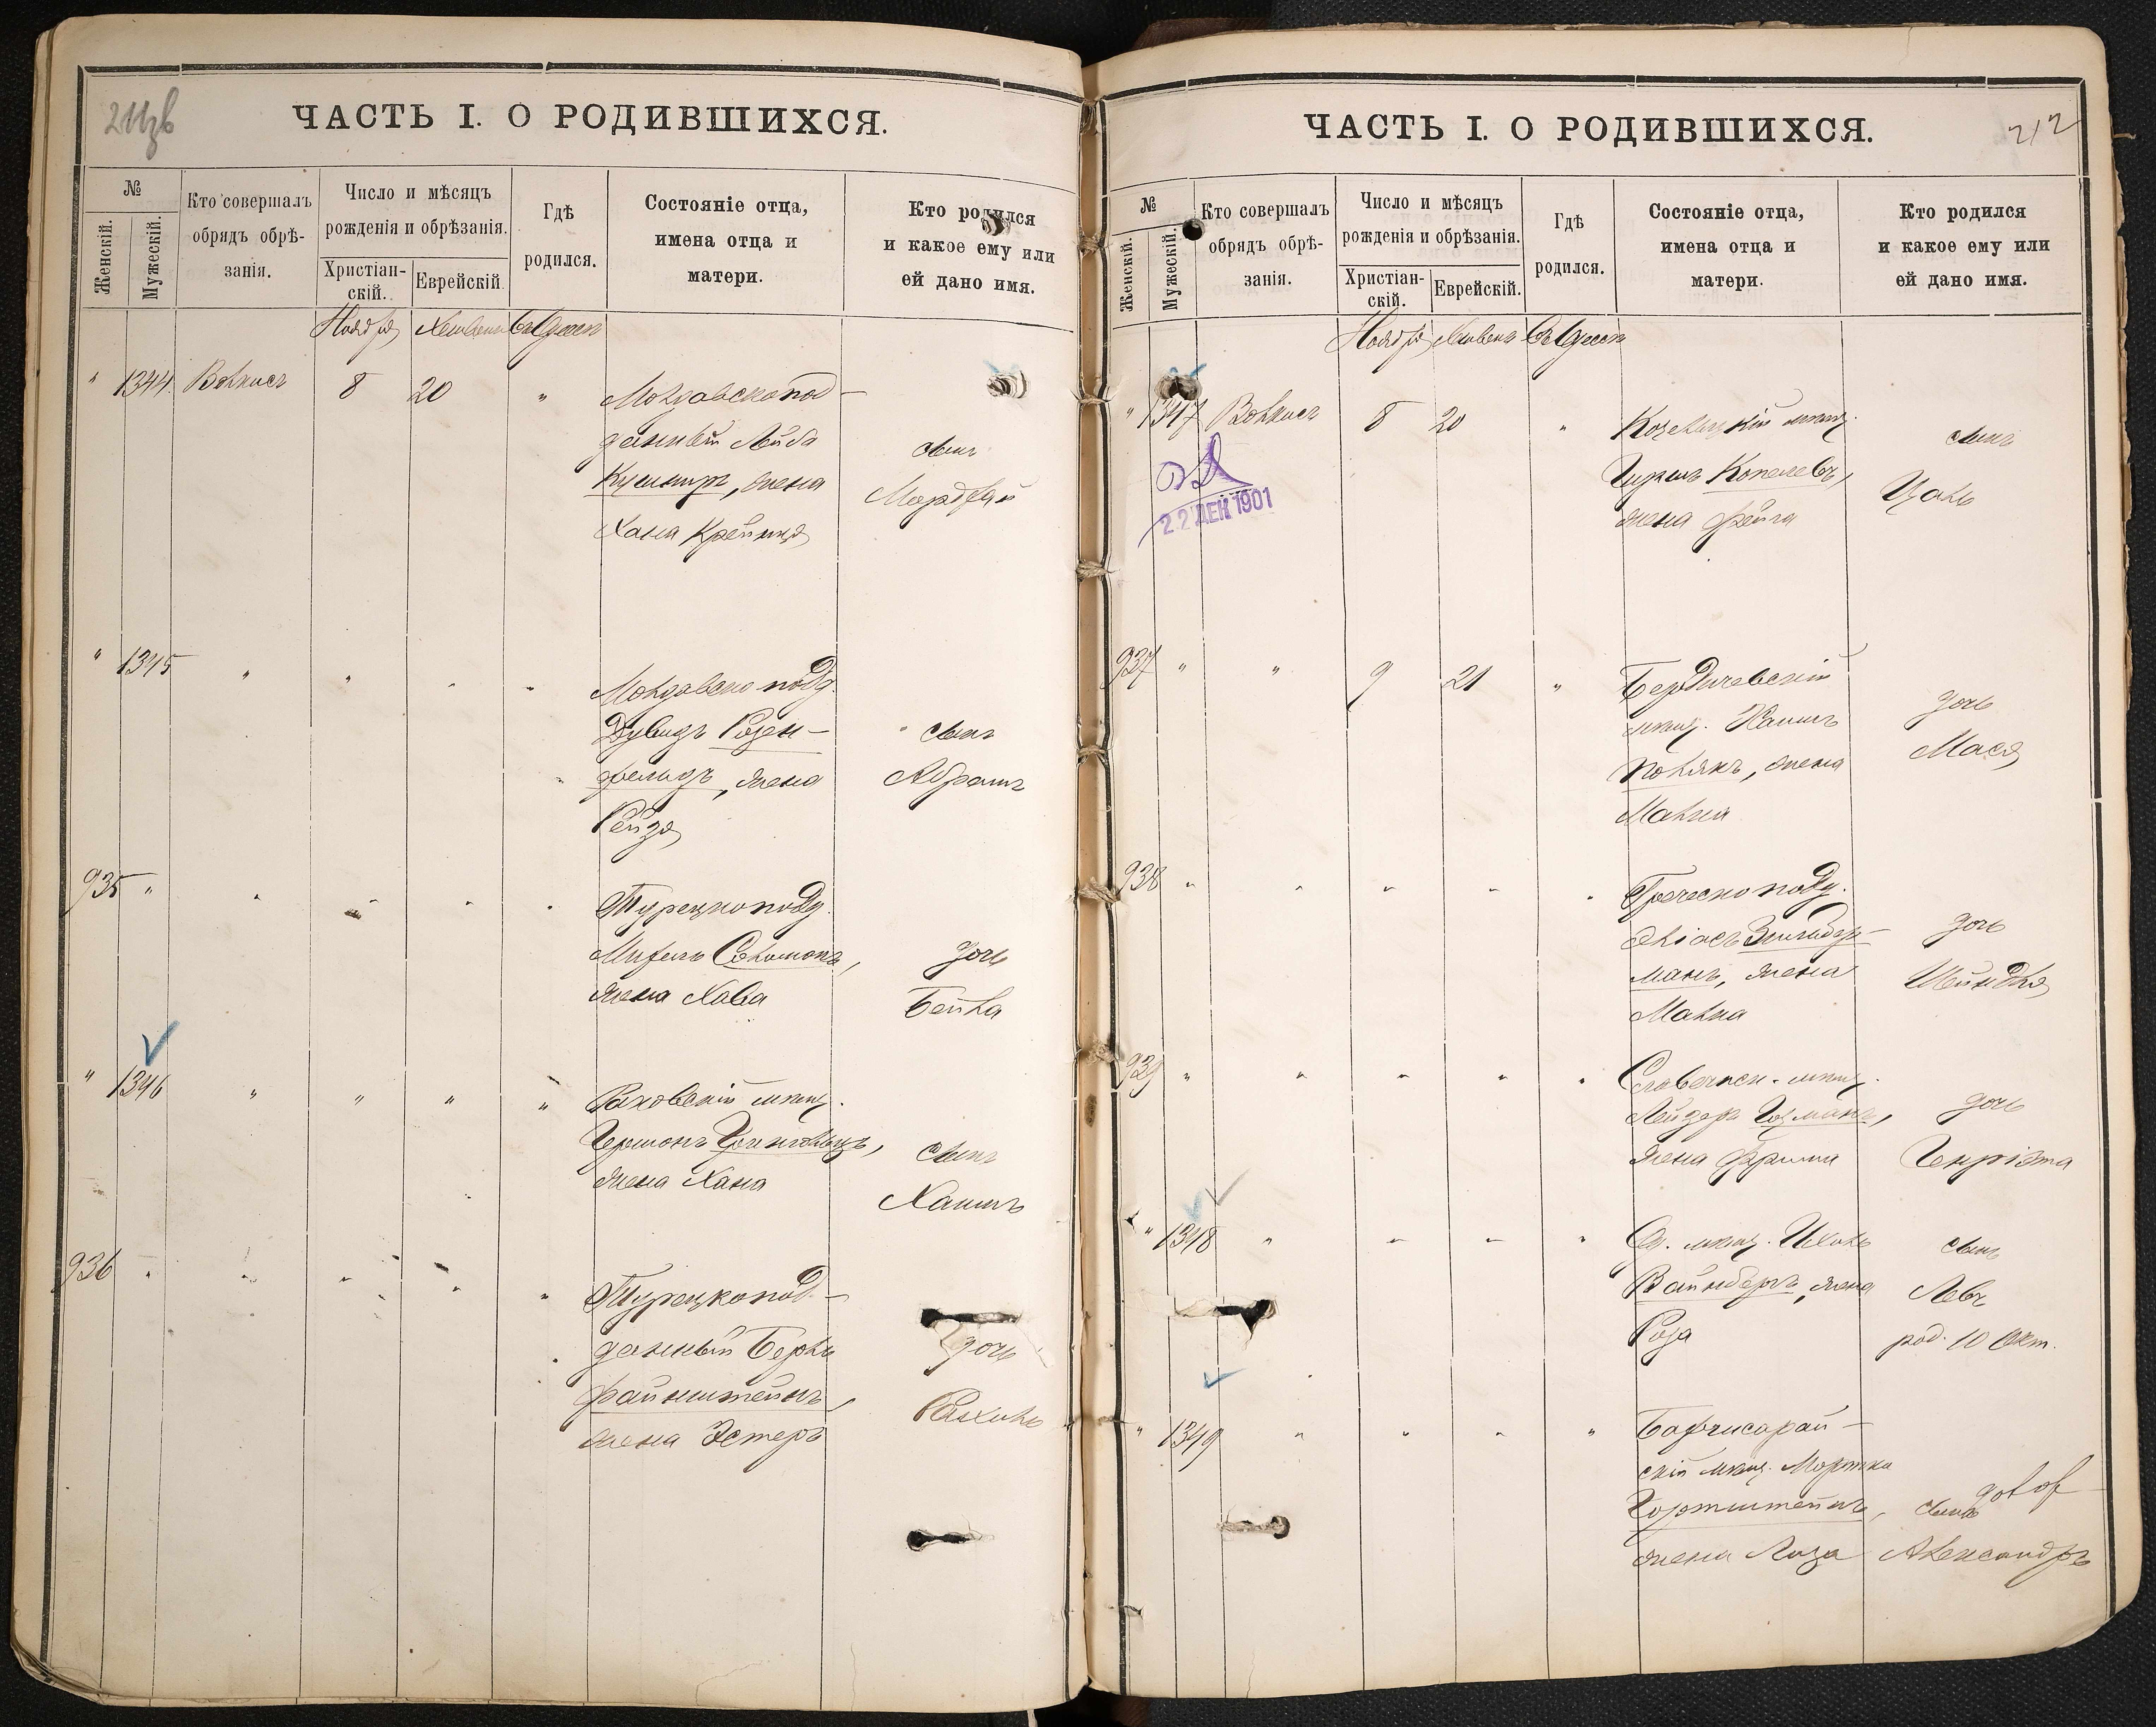 211зв
ЧАСТЬ I. О РОДИВШИХСЯ.
№
Женскій.
Мужескій.
Кто совершалъ
обрядъ обрѣ-
занія.
Число и мѣсяцъ
рожденія и обрѣзанія.
Христіан-
скій.
Еврейскій.
Гдѣ
родился.
Состояніе отца,
имена отца и
матери.
Кто родился
и какое ему или
ей дано имя.
Ноября Хешвана въ Одессѣ
" 1344. 8 20 "
Молдавскопод-
данный Лейба
Кушниръ, жена
Хана Крейнця
сынъ
Мордхай
" 1345 " " " "
Молдавско подд.
Дувидъ Розен-
фельдъ, жена
Рейзя
сынъ
Абрамъ
935 " " " " "
Турецкоподд.
Соломонъ,
жена Хава
дочь
Бейла
" 1346 " " " "
Раховскій мѣщ.
Гершонъ
жена Хана
сынъ
Хаимъ
936 " " " " "
Турецкопод-
данный Берль
Файнштейнъ,
жена Эстеръ
дочь
Рахиль
212
ЧАСТЬ I. О РОДИВШИХСЯ.
№
Женскій.
Мужескій.
Кто совершалъ
обрядъ обрѣ-
занія.
Число и мѣсяцъ
рожденія и обрѣзанія.
Христіан-
скій.
Еврейскій.
Гдѣ
родился.
Состояніе отца,
имена отца и
матери.
Кто родился
и какое ему или
ей дано имя.
Ноября Хешвана въ Одессѣ
" 1347 8 20 "
22 ДЕК 1901
мѣщ.
Копелевъ,
жена Фейга
сынъ
937 " " 9 21 "
Бердичевскій
мѣщ. Хаимъ
Полякъ, жена
Малка
дочь
Мася
938 " " " " "
Греческо подд.
Зильбер-
манъ, жена
Малка
дочь
Шейндля
939 " " " " "
мѣщ.
Лейзеръ Гузманъ,
жена Фрима
дочь
Генріэта
" 1348 " " " "
Од. мѣщ. Ихиль
Вайнбергъ, жена
Роза
сынъ
Левъ
род. 10 Окт.
" 1349 " " " "
Бахчисарай-
скій мѣщ. Мортка
Гортштейнъ,
жена Лиза
сынъ
Александръ